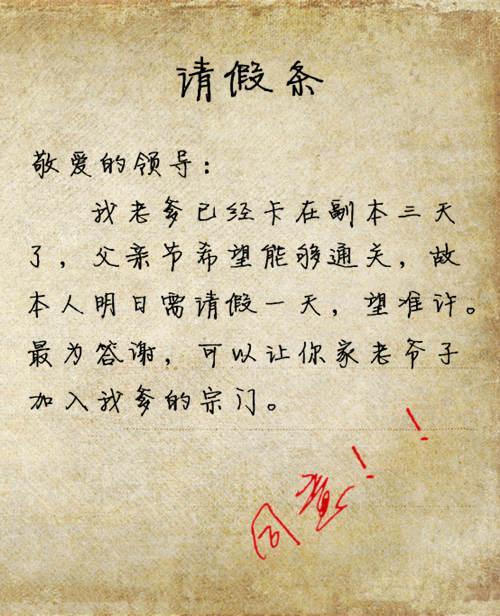 请假条
敬爱的领导：
我老爹已经卡在副本三天
了，父亲节希望能够通关，故
本人明日需请假一天，望准许。
最为答谢，可以让你家老爷子
加入我爹的宗门。
同意！！